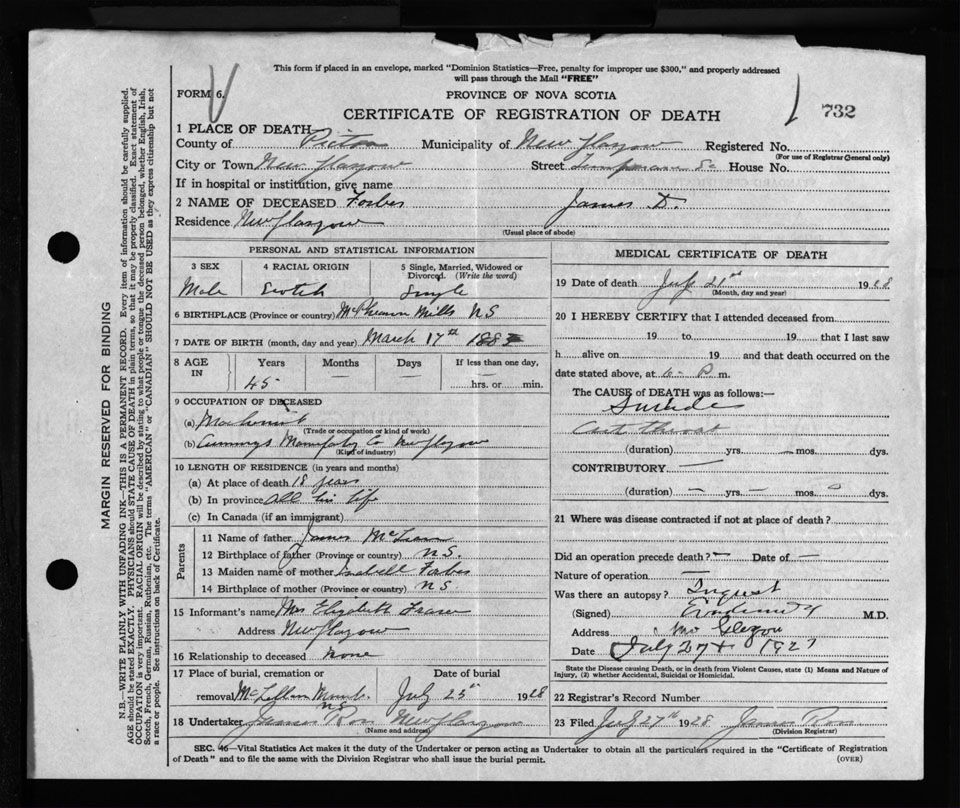 This form if placed in an envelope, marked "Dominion Statistics—Free, penalty for improper use $300," and properly addressed
will pass through the Mail "FREE"
FORM 6. PROVINCE OF NOVA SCOTIA
CERTIFICATE OF REGISTRATION OF DEATH 732
1 PLACE OF DEATH
County of Pictou Municipality of New Glasgow Registered No.
(For use of Registrar General only)
City or Town New Glasgow Street House No.
If in hospital or institution, give name
2 NAME OF DECEASED Forbes James D.
Residence New Glasgow
(Usual place of abode)
PERSONAL AND STATISTICAL INFORMATION
3 SEX 4 RACIAL ORIGIN 5 Single, Married, Widowed or
Divorced. (Write the word)
Male Scotch Single
6 BIRTHPLACE (Province or country) Mills NS
7 DATE OF BIRTH (month, day and year) March 17th 1883
8 AGE IN Years Months Days If less than one day,
45 — — hrs. or min.
9 OCCUPATION OF DECEASED
(a) Machinist
(Trade or occupation or kind of work)
(b) Cummings Co New Glasgow
(Kind of industry)
10 LENGTH OF RESIDENCE (in years and months)
(a) At place of death 18 years
(b) In province All his life
(c) In Canada (if an immigrant)
Parents
11 Name of father James McLean
12 Birthplace of father (Province or country) N.S.
13 Maiden name of mother Isabell Forbes
14 Birthplace of mother (Province or country) NS
15 Informant's name Mrs Elizabeth Fraser
Address New Glasgow
16 Relationship to deceased None
17 Place of burial, cremation or Date of burial
removal McLellan NS July 25th 1928
18 Undertaker James Ross New Glasgow
(Name and address)
MEDICAL CERTIFICATE OF DEATH
19 Date of death July 21st 1928
(Month, day and year)
20 I HEREBY CERTIFY that I attended deceased from
19 to 19 that I last saw
h alive on 19 and that death occurred on
date stated above, at 6 - P. m.
The CAUSE of DEATH was as follows:—
Suicide
Cut throat
(duration) yrs. — mos. dys.
CONTRIBUTORY —
(duration) — yrs. — mos. dys.
21 Where was disease contracted if not at place of death?
Did an operation precede death? — Date of —
Nature of operation —
Was there an autopsy? Inquest
(Signed) M.D.
Address
Date July 27th 1927
State the Disease causing Death, or in death from Violent Causes, state (1) Means and Nature of
Injury, (2) whether Accidental, Suicidal or Homicidal.
22 Registrar's Record Number
23 Filed July 27th 1928 James Ross
(Division Registrar)
SEC. 46—Vital Statistics Act makes it the duty of the Undertaker or person acting as Undertaker to obtain all the particulars required in the "Certificate of Registration
of Death" and to file the same with the Division Registrar who shall issue the burial permit. (OVER)
MARGIN RESERVED FOR BINDING
N.B.—WRITE PLAINLY WITH UNFADING INK—THIS IS A PERMANENT RECORD. Every item of information should be carefully supplied.
AGE should be stated EXACTLY. PHYSICIANS should STATE CAUSE OF DEATH in plain terms, so that it may be properly classified. Exact statement of
OCCUPATION is very important. RACIAL ORIGIN will be described by stating to what people or tongue the deceased person belonged, whether English, Irish,
Scotch, French, German, Russian, Ruthenian, etc. The terms "AMERICAN" or "CANADIAN" SHOULD NOT BE USED as they express citizenship but not
a race or people. See instructions on back of Certificate.